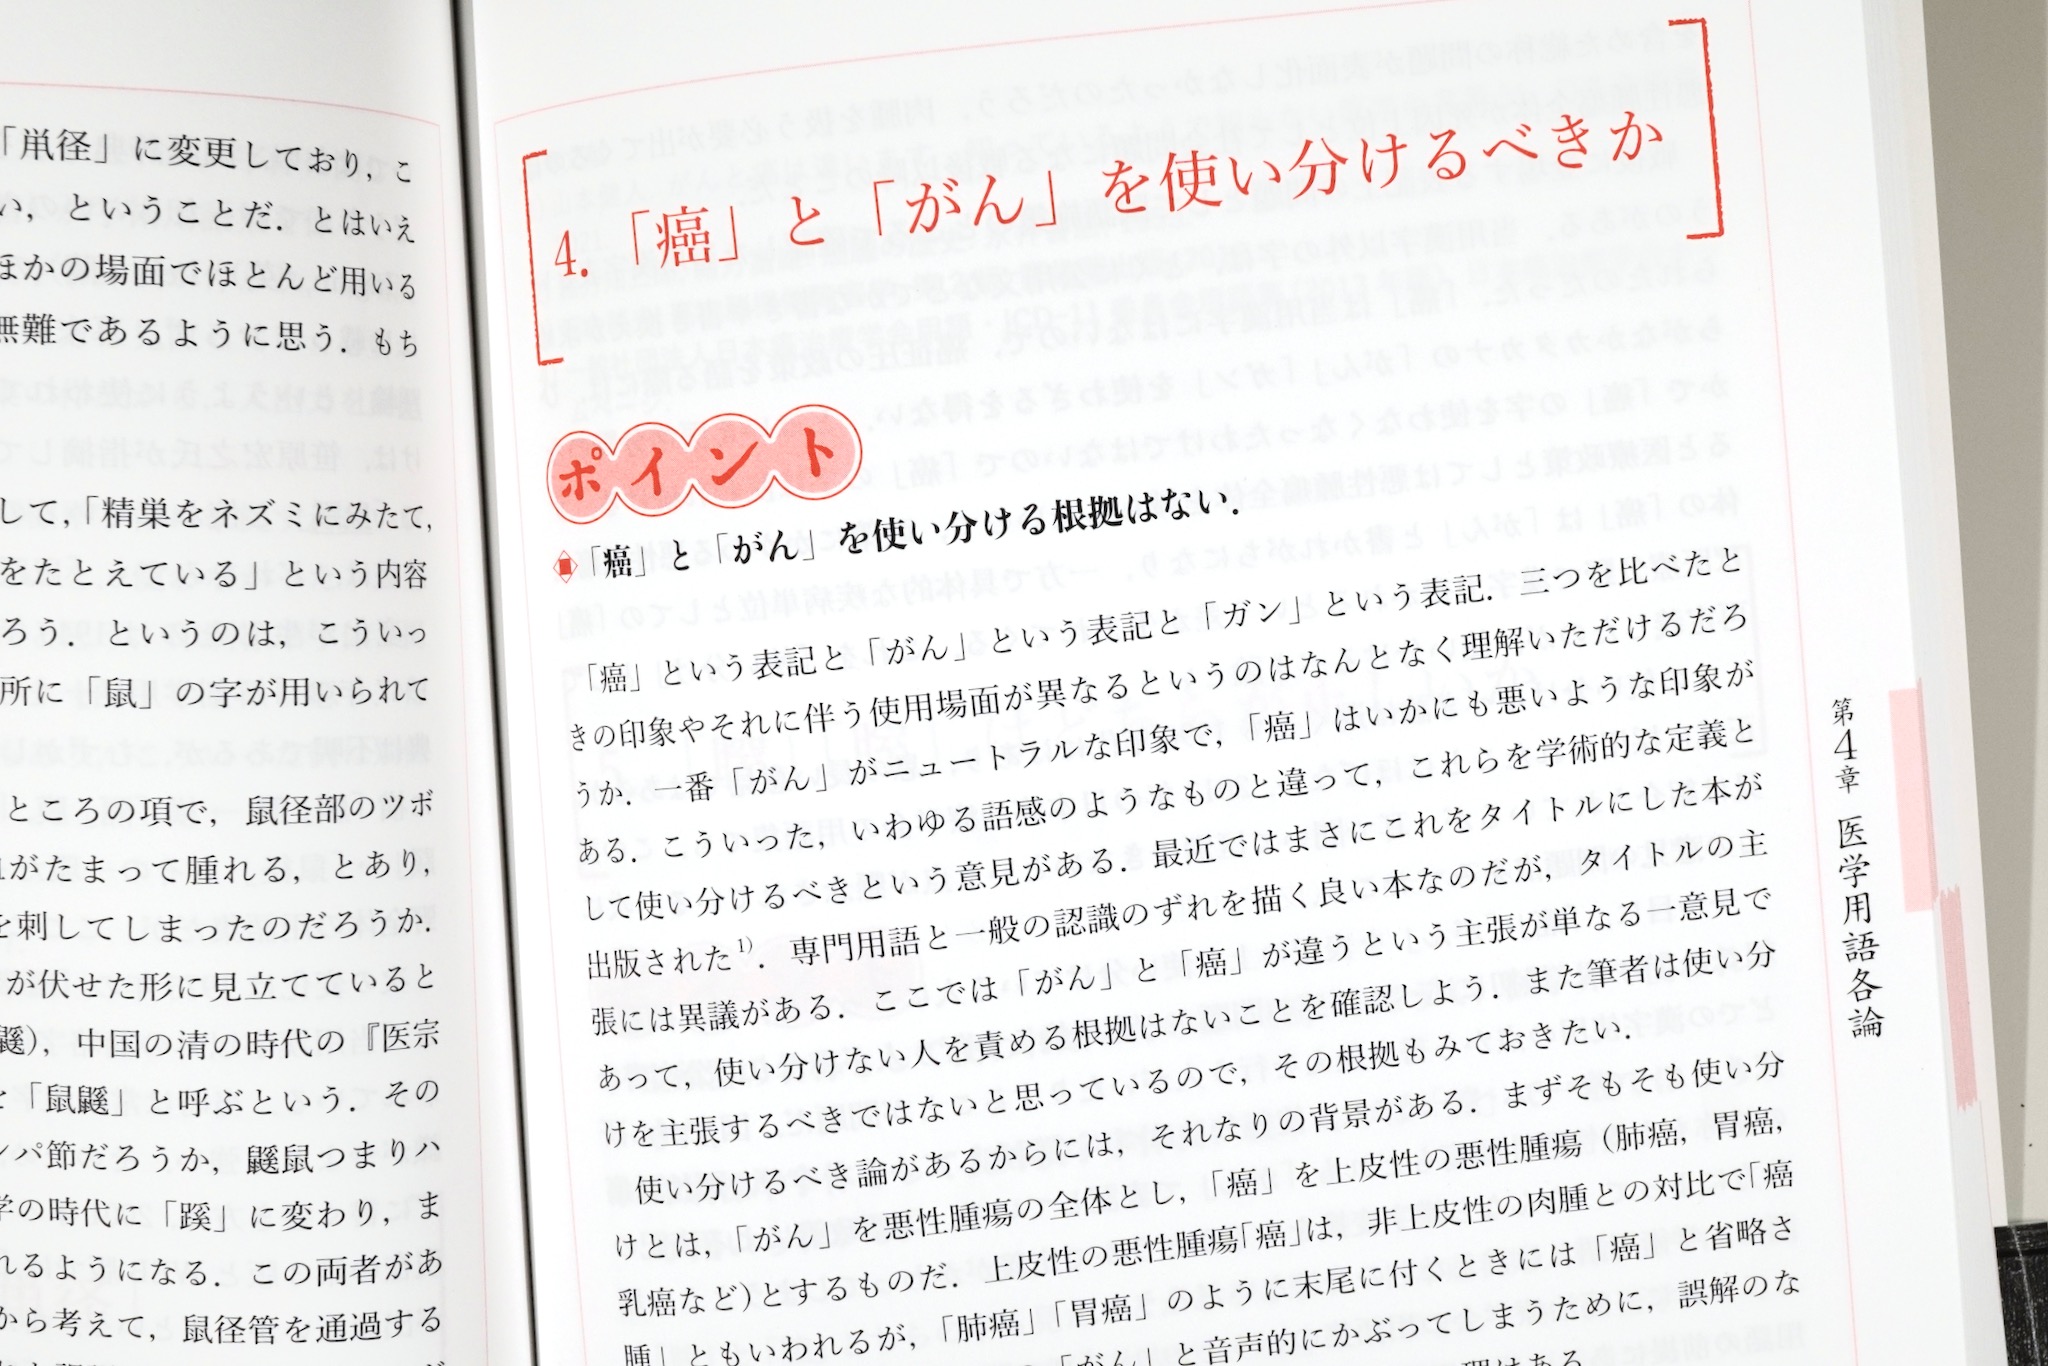 「鼡径」に変更しており，こ
い，ということだ．とはいえ
ほかの場面でほとんど用いる
無難であるように思う．もち
して，「精巣をネズミにみたて，
をたとえている」という内容
ろう．というのは，こういっ
所に「鼠」の字が用いられて
ところの項で，鼠径部のツボ
がたまって腫れる，とあり，
を刺してしまったのだろうか．
が伏せた形に見立てていると
，中国の清の時代の『医宗
「鼠鼷」と呼ぶという．その
パ節だろうか，鼷鼠つまりハ
学の時代に「蹊」に変わり，ま
れるようになる．この両者があ
から考えて，鼠径管を通過する
4．「癌」と「がん」を使い分けるべきか
ポイント
「癌」と「がん」を使い分ける根拠はない．
「癌」という表記と「がん」という表記と「ガン」という表記．三つを比べたと
きの印象やそれに伴う使用場面が異なるというのはなんとなく理解いただけるだろ
うか．一番「がん」がニュートラルな印象で，「癌」はいかにも悪いような印象が
ある．こういった，いわゆる語感のようなものと違って，これらを学術的な定義と
して使い分けるべきという意見がある．最近ではまさにこれをタイトルにした本が
出版された1)．専門用語と一般の認識のずれを描く良い本なのだが，タイトルの主
張には異議がある．ここでは「がん」と「癌」が違うという主張が単なる一意見で
あって，使い分けない人を責める根拠はないことを確認しよう．また筆者は使い分
けを主張するべきではないと思っているので，その根拠もみておきたい．
使い分けるべき論があるからには，それなりの背景がある．まずそもそも使い分
けとは，「がん」を悪性腫瘍の全体とし，「癌」を上皮性の悪性腫瘍（肺癌，胃癌，
乳癌など）とするものだ．上皮性の悪性腫瘍「癌」は，非上皮性の肉腫との対比で「癌
腫」ともいわれるが，「肺癌」「胃癌」のように末尾に付くときには「癌」と省略さ
「がん」と音声的にかぶってしまうために，誤解のな
第4章 医学用語各論